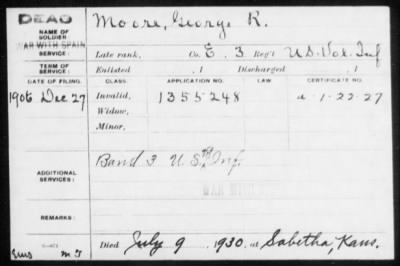 DEAD
NAME OF SOLDIER Moore, George K.
WAR WITH SPAIN
SERVICE: Late rank, Co. E, 3 Reg't U.S. Vol. Inf
TERM OF SERVICE: Enlisted , 1 Discharged , 1
DATE OF FILING. CLASS. APPLICATION NO. LAW. CERTIFICATE NO.
1906 Dec 27 Invalid, 1355248 1-22-27
Widow,
Minor,
ADDITIONAL SERVICES: Band 3 U.S. Inf.
REMARKS:
Died July 9 1930, at Sabetha, Kans.